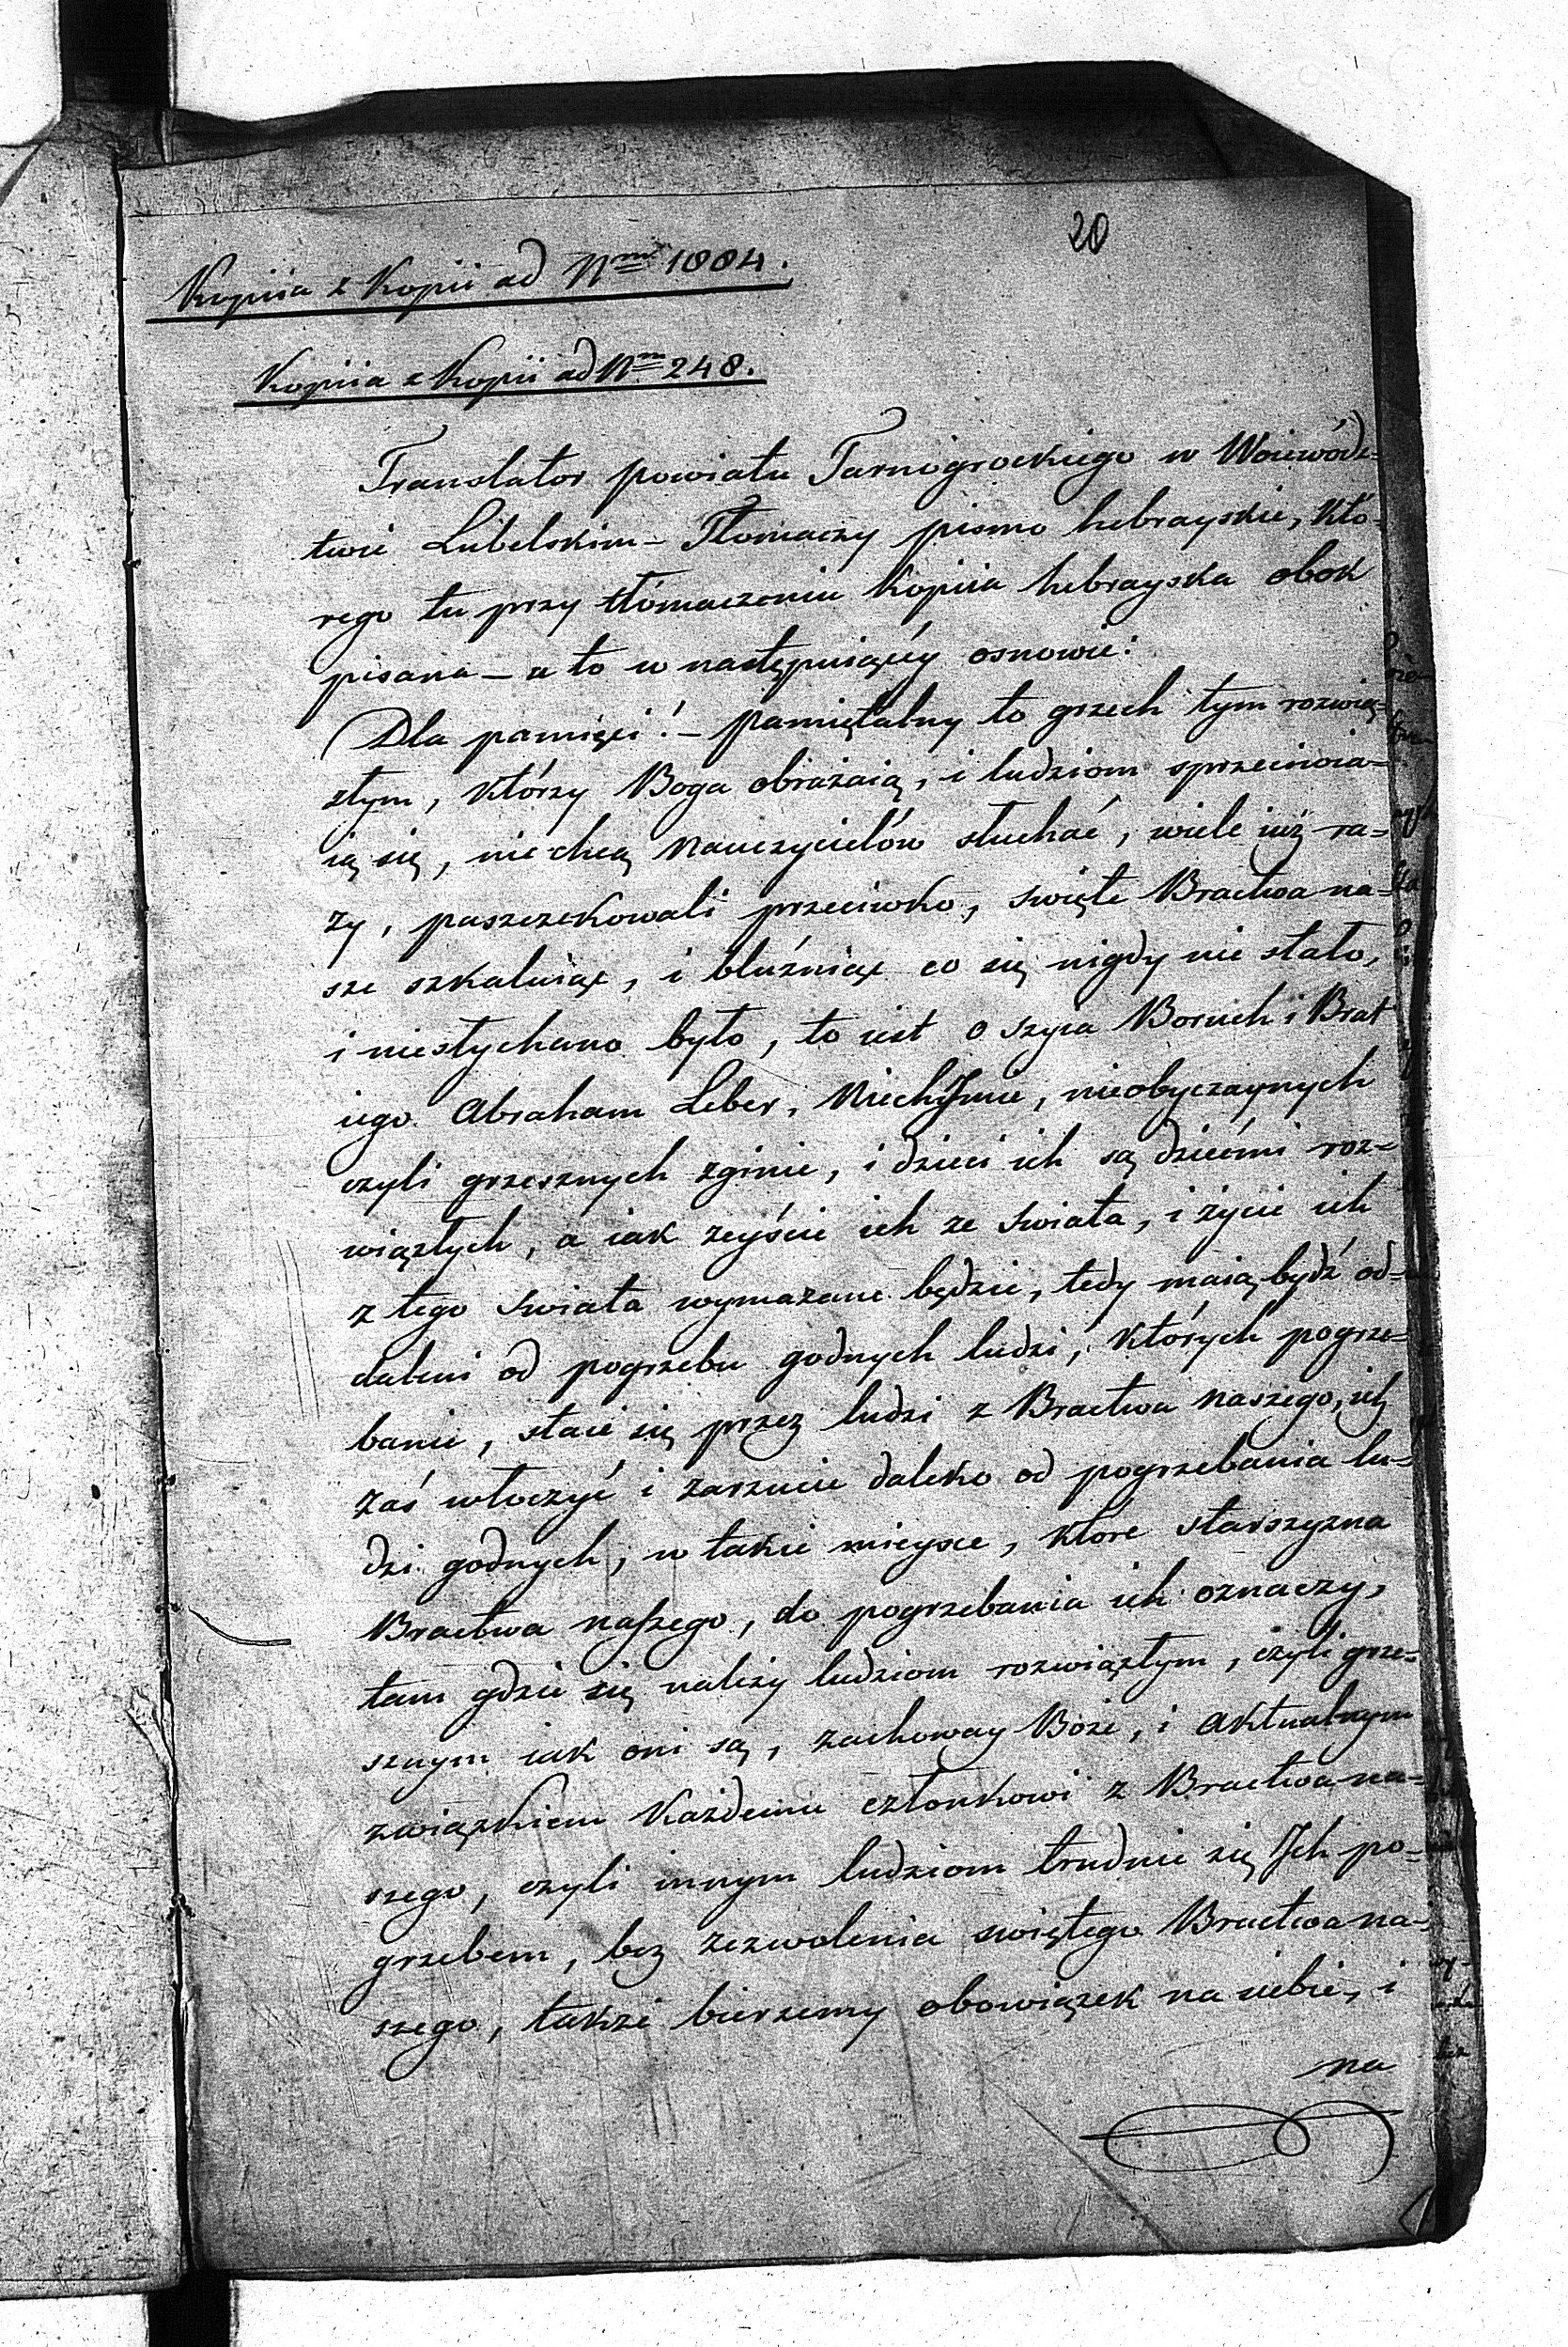 20
Kopiia z Kopii ad Nm 1884.
Kopiia z Kopii ad Nm 248.
Translator powiatu Tarnogrockiego w Woiewódz=
twie Lubelskim – Tłomaczy pismo hebrayskie, któ=
rego tu przy tłómaczeniu kopiia hebrayska obok
pisana – a to w następuiącéy osnowie:
Dla pamięci! – pamiętalny to grzech tym rozwią=
złym, którzy Boga obrażaią, i ludziom sprzeciwia=
ią się, nie chcą Nauczycielów słuchać, wiele iuż ra=
zy, paszczekowali przeciwko, święte Bractwa na=
sze szkaluiąc, i bluźniąc co się nigdy nie stało,
i niesłychano było, to iest o Szyia Boruch i Brat
iego Abraham Leber, Niech Jmie, nieobyczaynych
czyli grzesznych zginie, i dzieci ich są dziećmi roz=
wiązłych, a iak zeyście ich ze świata, i życie ich
z tego świata wymazane będzie, tedy maią bydź od=
daleni od pogrzebu godnych ludzi, których pogrze=
banie, staie się przez ludzi z Bractwa naszego, ich
zaś włoczyć i zarzucie daleko od pogrzebania lu=
dzi godnych, w takie mieysce, które starszyzna
Bractwa naszego, do pogrzebania ich oznaczy,
tam gdzie się należy ludziom rozwiązłym, czyli grze=
sznym iak oni są, zachoway Boże, i aktualnym
związkiem każdemu członkowi z Bractwa na=
szego, czyli innym ludziom trudnić się Jch po=
grzebem, bez zezwolenia swiętego Bractwa na=
szego, także bierzemy obowiązek na siebie, i
na